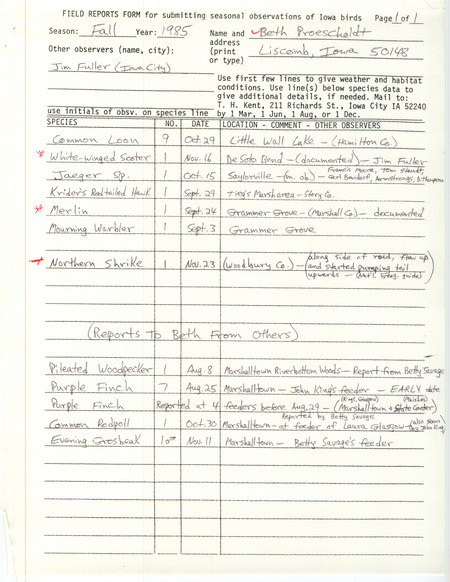 FIELD REPORTS FORM for submitting seasonal observations of Iowa birds Page 1 of 1
Season: Fall Year: 1985 Name and Beth Proescholdt
address
Other observers (name, city): (print Liscomb, Iowa 50148
or type)
Jim Fuller (Iowa City)
Use first few lines to give weather and habitat
conditions. Use line(s) below species data to
give additional details, if needed. Mail to:
T. H. Kent, 211 Richards St., Iowa City IA 52240
use initials of obsv. on species line by 1 Mar, 1 Jun, 1 Aug, or 1 Dec.
SPECIES NO. DATE LOCATION - COMMENT - OTHER OBSERVERS
Common Loon 9 Oct.29 Little Wall Lake - (Hamilton Co.)
* White-winged Scoter 1 Nov.16 De Soto Bend - (documented) - Jim Fuller
Jaeger sp. 1 Oct.15 Saylorville - (m. ob.) - Francis Moore, Tom Stewart,
Carl Bendorf, Armstrongs, D. Thompson
Krider's Redtailed Hawk 1 Sept.29 Marsharea - Story Co.
* Merlin 1 Sept.24 Grammer Grove - (Marshall Co) - documented
Mourning Warbler 1 Sept.3 Grammer Grove
* Northern Shrike 1 Nov.23 (Woodbury Co.) - (along side of road, flew up
and started pumping tail
upwards - (Nat'l. Geog. guide)
(Reports To Beth From Others)
Pileated Woodpecker 1 Aug.8 Marshalltown Riverbottom Woods - Report from Betty Savage
Purple Finch 7 Aug.25 Marshalltown - John King's feeder - EARLY date
Purple Finch Reported at 4 feeders before Aug.29 - (Marshalltown + State Center)
Reported by Betty Savage
Common Redpoll 1 Oct.30 Marshalltown - at feeder of Laura Glasgow - (also seen
by John King)
Evening Grosbeak 10 Nov.11 Marshalltown - Betty Savage's feeder